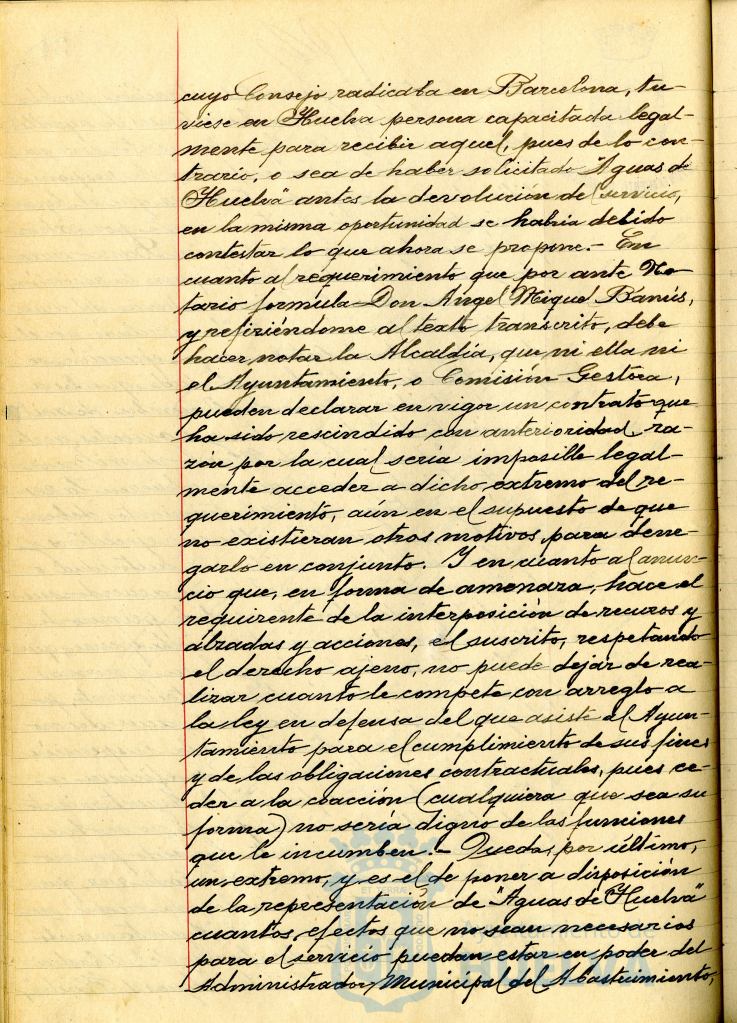 cuyo Consejo radicaba en Barcelona, tu-
viese en Huelva persona capacitada legal-
mente para recibir aquel, pues de lo con-
trario, o sea de haber solicitado "Aguas de
Huelva" antes la devolución del servicio,
en la misma oportunidad se habría debido
contestar lo que ahora se propone.- En
cuanto al requerimiento que por ante No-
tario formula Don Angel Miquel Banús,
y refiriéndome al texto transcrito, debe
hacer notar la Alcaldía, que ni ella ni
el Ayuntamiento, o Comisión Gestora,
pueden declarar en vigor un contrato que
ha sido rescindido con anterioridad, ra-
zón por la cual sería imposible legal-
mente acceder a dicho extremo del re-
querimiento, aún en el supuesto de que
no existieran otros motivos para dene-
garlo en conjunto. Y en cuanto al anun-
cio que, en forma de amenaza, hace el
requirente de la interposición de recursos y
alzadas y acciones, el suscrito, respetando
el derecho ajeno, no puede dejar de rea-
lizar cuanto le compete con arreglo a
la ley en defensa del que asiste al Ayun-
tamiento para el cumplimiento de sus fines
y de las obligaciones contractuales, pues ce-
der a la coacción (cualquiera que sea su
forma) no sería digno de las funciones
que le incumben.- Queda, por último,
un extremo, y es el de poner a disposición
de la representación de "Aguas de Huelva"
cuantos efectos que no sean necesarios
para el servicio puedan estar en poder del
Administrador Municipal del Abastecimiento,